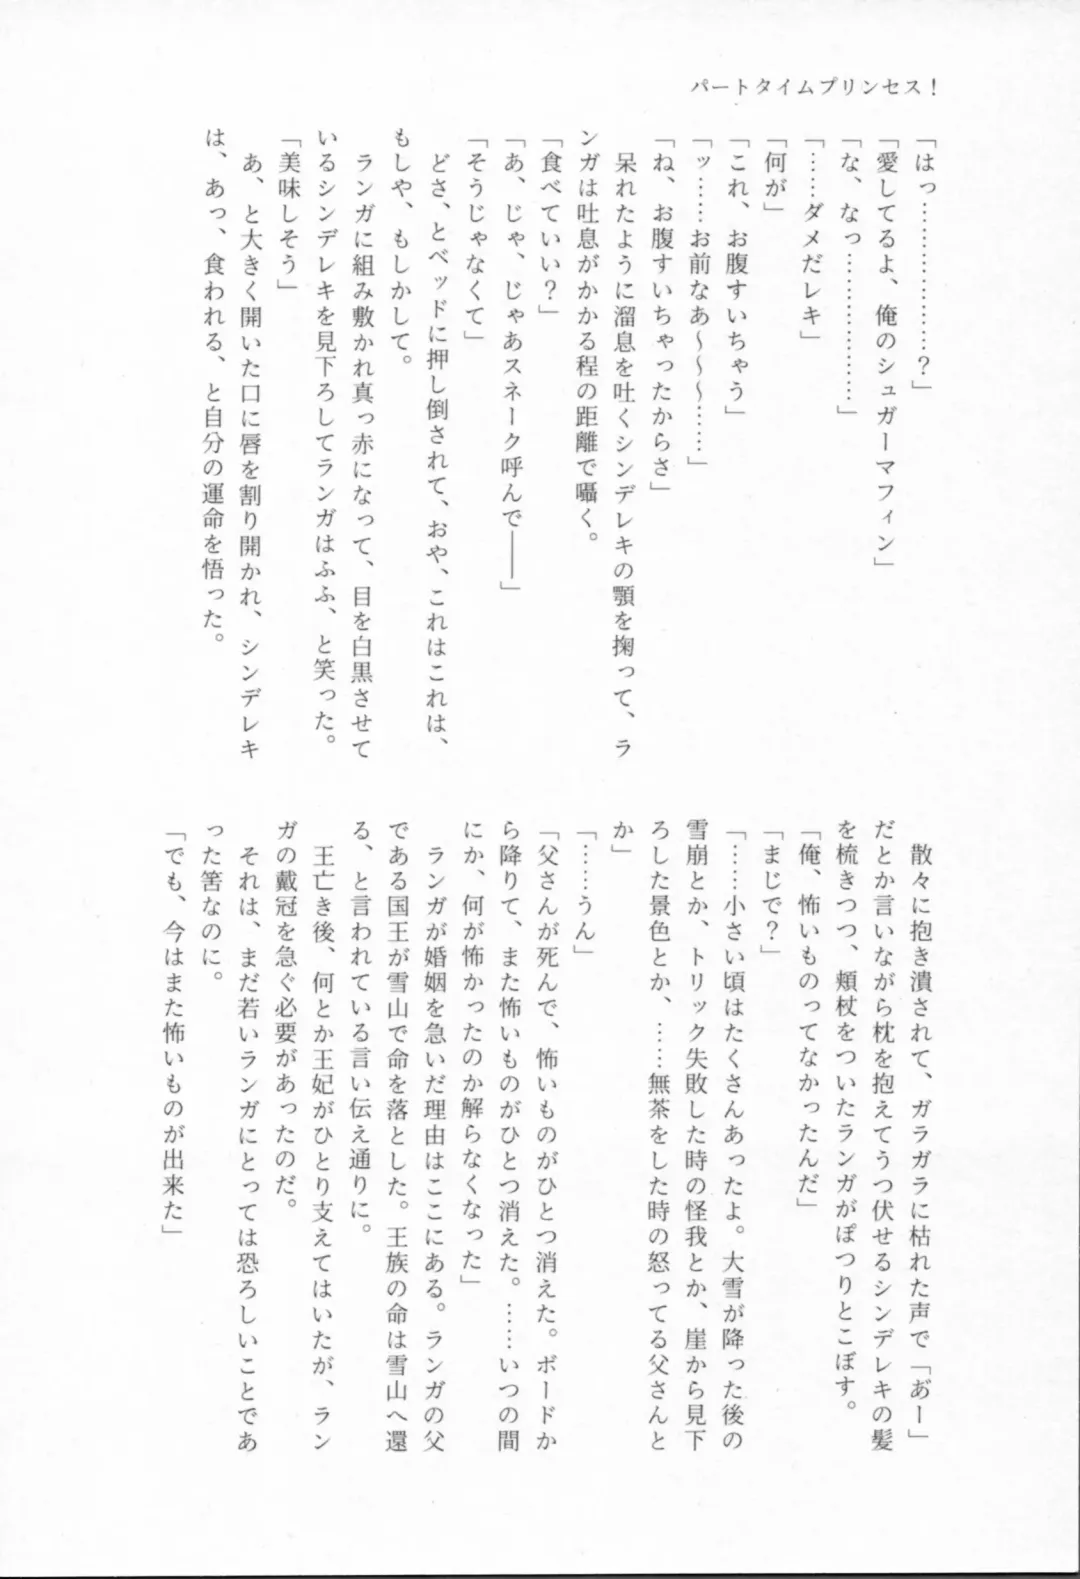 パートタイムプリンセス！
「はっ………………？」
「愛してるよ、俺のシュガーマフィン」
「な、なっ………………」
「……ダメだレキ」
「何が」
「これ、お腹すいちゃう」
「ッ……お前なあ～～～……」
「ね、お腹すいちゃったからさ」
　呆れたように溜息を吐くシンデレキの顎を掬って、ラ
ンガは吐息がかかる程の距離で囁く。
「食べていい？」
「あ、じゃ、じゃあスネーク呼んで――」
「そうじゃなくて」
　どさ、とベッドに押し倒されて、おや、これはこれは、
もしや、もしかして。
　ランガに組み敷かれ真っ赤になって、目を白黒させて
いるシンデレキを見下ろしてランガはふふ、と笑った。
「美味しそう」
　あ、と大きく開いた口に唇を割り開かれ、シンデレキ
は、あっ、食われる、と自分の運命を悟った。
　散々に抱き潰されて、ガラガラに枯れた声で「あ゙ー」
だとか言いながら枕を抱えてうつ伏せるシンデレキの髪
を梳きつつ、頬杖をついたランガがぽつりとこぼす。
「俺、怖いものってなかったんだ」
「まじで？」
「……小さい頃はたくさんあったよ。大雪が降った後の
雪崩とか、トリック失敗した時の怪我とか、崖から見下
ろした景色とか、……無茶をした時の怒ってる父さんと
か」
「……うん」
「父さんが死んで、怖いものがひとつ消えた。ボードか
ら降りて、また怖いものがひとつ消えた。……いつの間
にか、何が怖かったのか解らなくなった」
　ランガが婚姻を急いだ理由はここにある。ランガの父
である国王が雪山で命を落とした。王族の命は雪山へ還
る、と言われている言い伝え通りに。
　王亡き後、何とか王妃がひとり支えてはいたが、ラン
ガの戴冠を急ぐ必要があったのだ。
　それは、まだ若いランガにとっては恐ろしいことであ
った筈なのに。
「でも、今はまた怖いものが出来た」